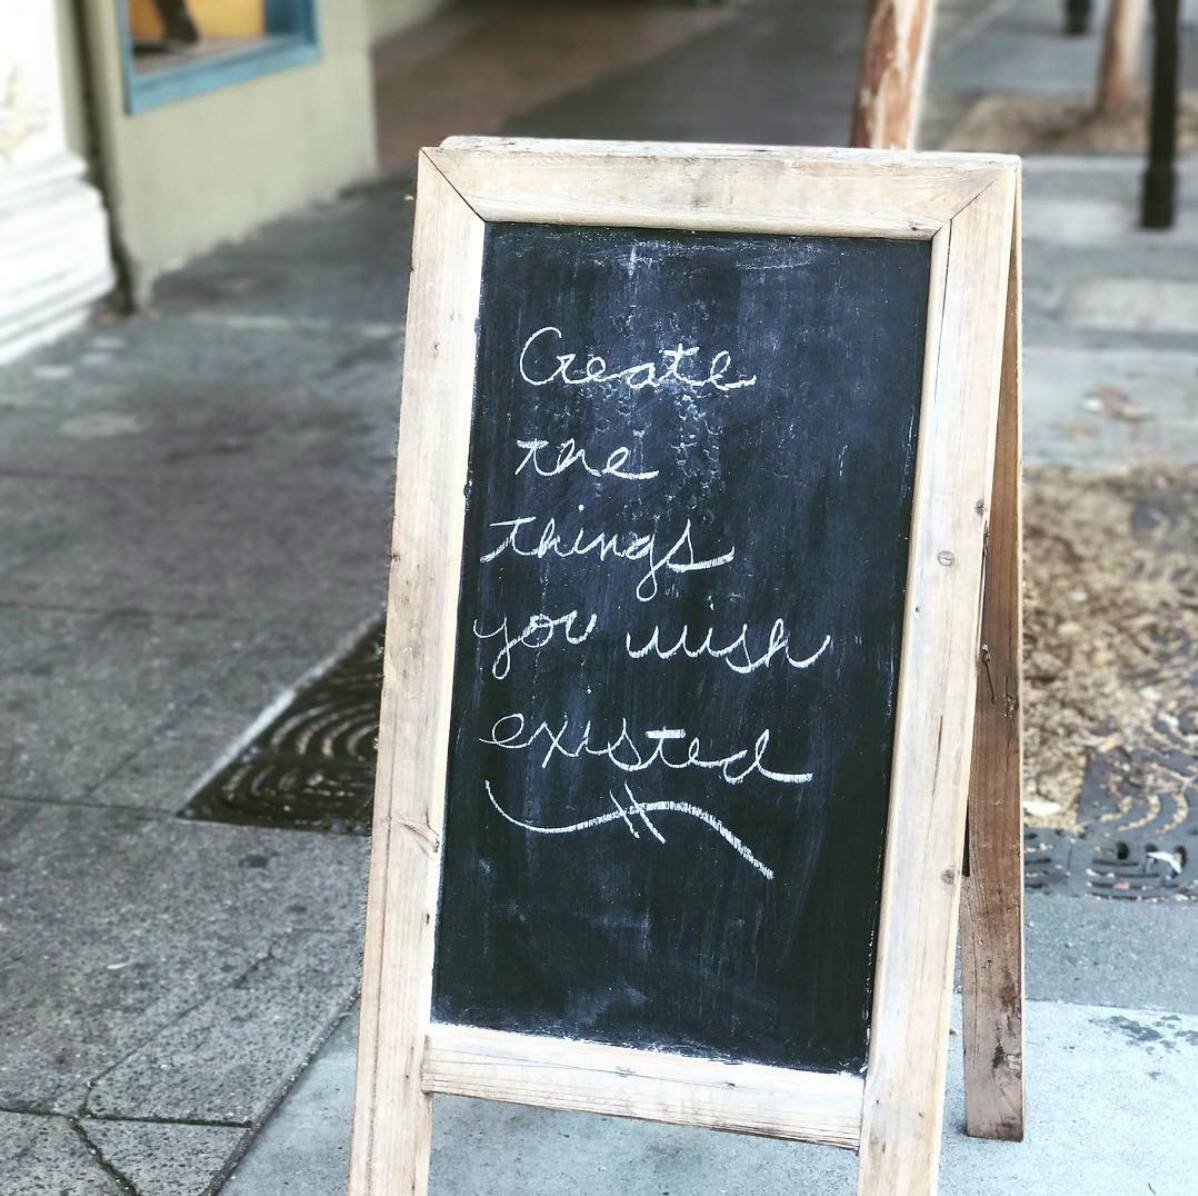 Create
the
things
you wish
existed